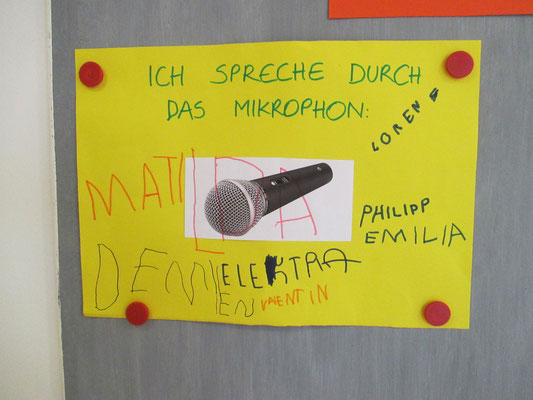 ICH SPRECHE DURCH
DAS MIKROPHON:
LORENE
MATILDA
PHILIPP
EMILIA
DEMI
EN
ELEKTRA
VALENTIN